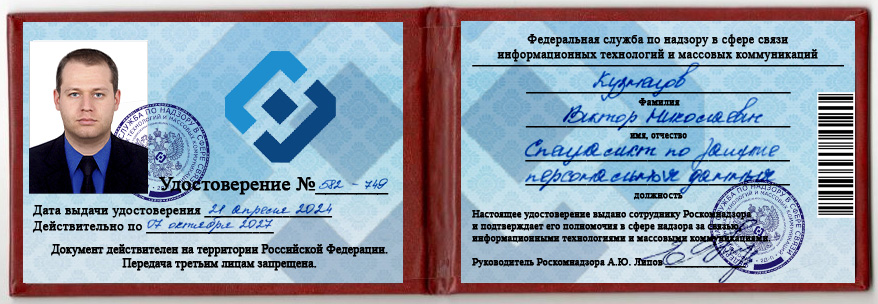 Удостоверение № 582 - 749
Дата выдачи удостоверения 21 апреля 2024
Действительно по 07 октября 2027
Документ действителен на территории Российской Федерации.
Передача третьим лицам запрещена.
Федеральная служба по надзору в сфере связи
информационных технологий и массовых коммуникаций
Кузнецов
Фамилия
Виктор Николаевич
имя, отчество
Специалист по защите
персональных данных
должность
Настоящее удостоверение выдано сотруднику Роскомнадзора
и подтверждает его полномочия в сфере надзора за связью,
информационными технологиями и массовыми коммуникациями
Руководитель Роскомнадзора А.Ю. Липов
СЛУЖБА ПО НАДЗОРУ В СФЕРЕ СВЯЗИ